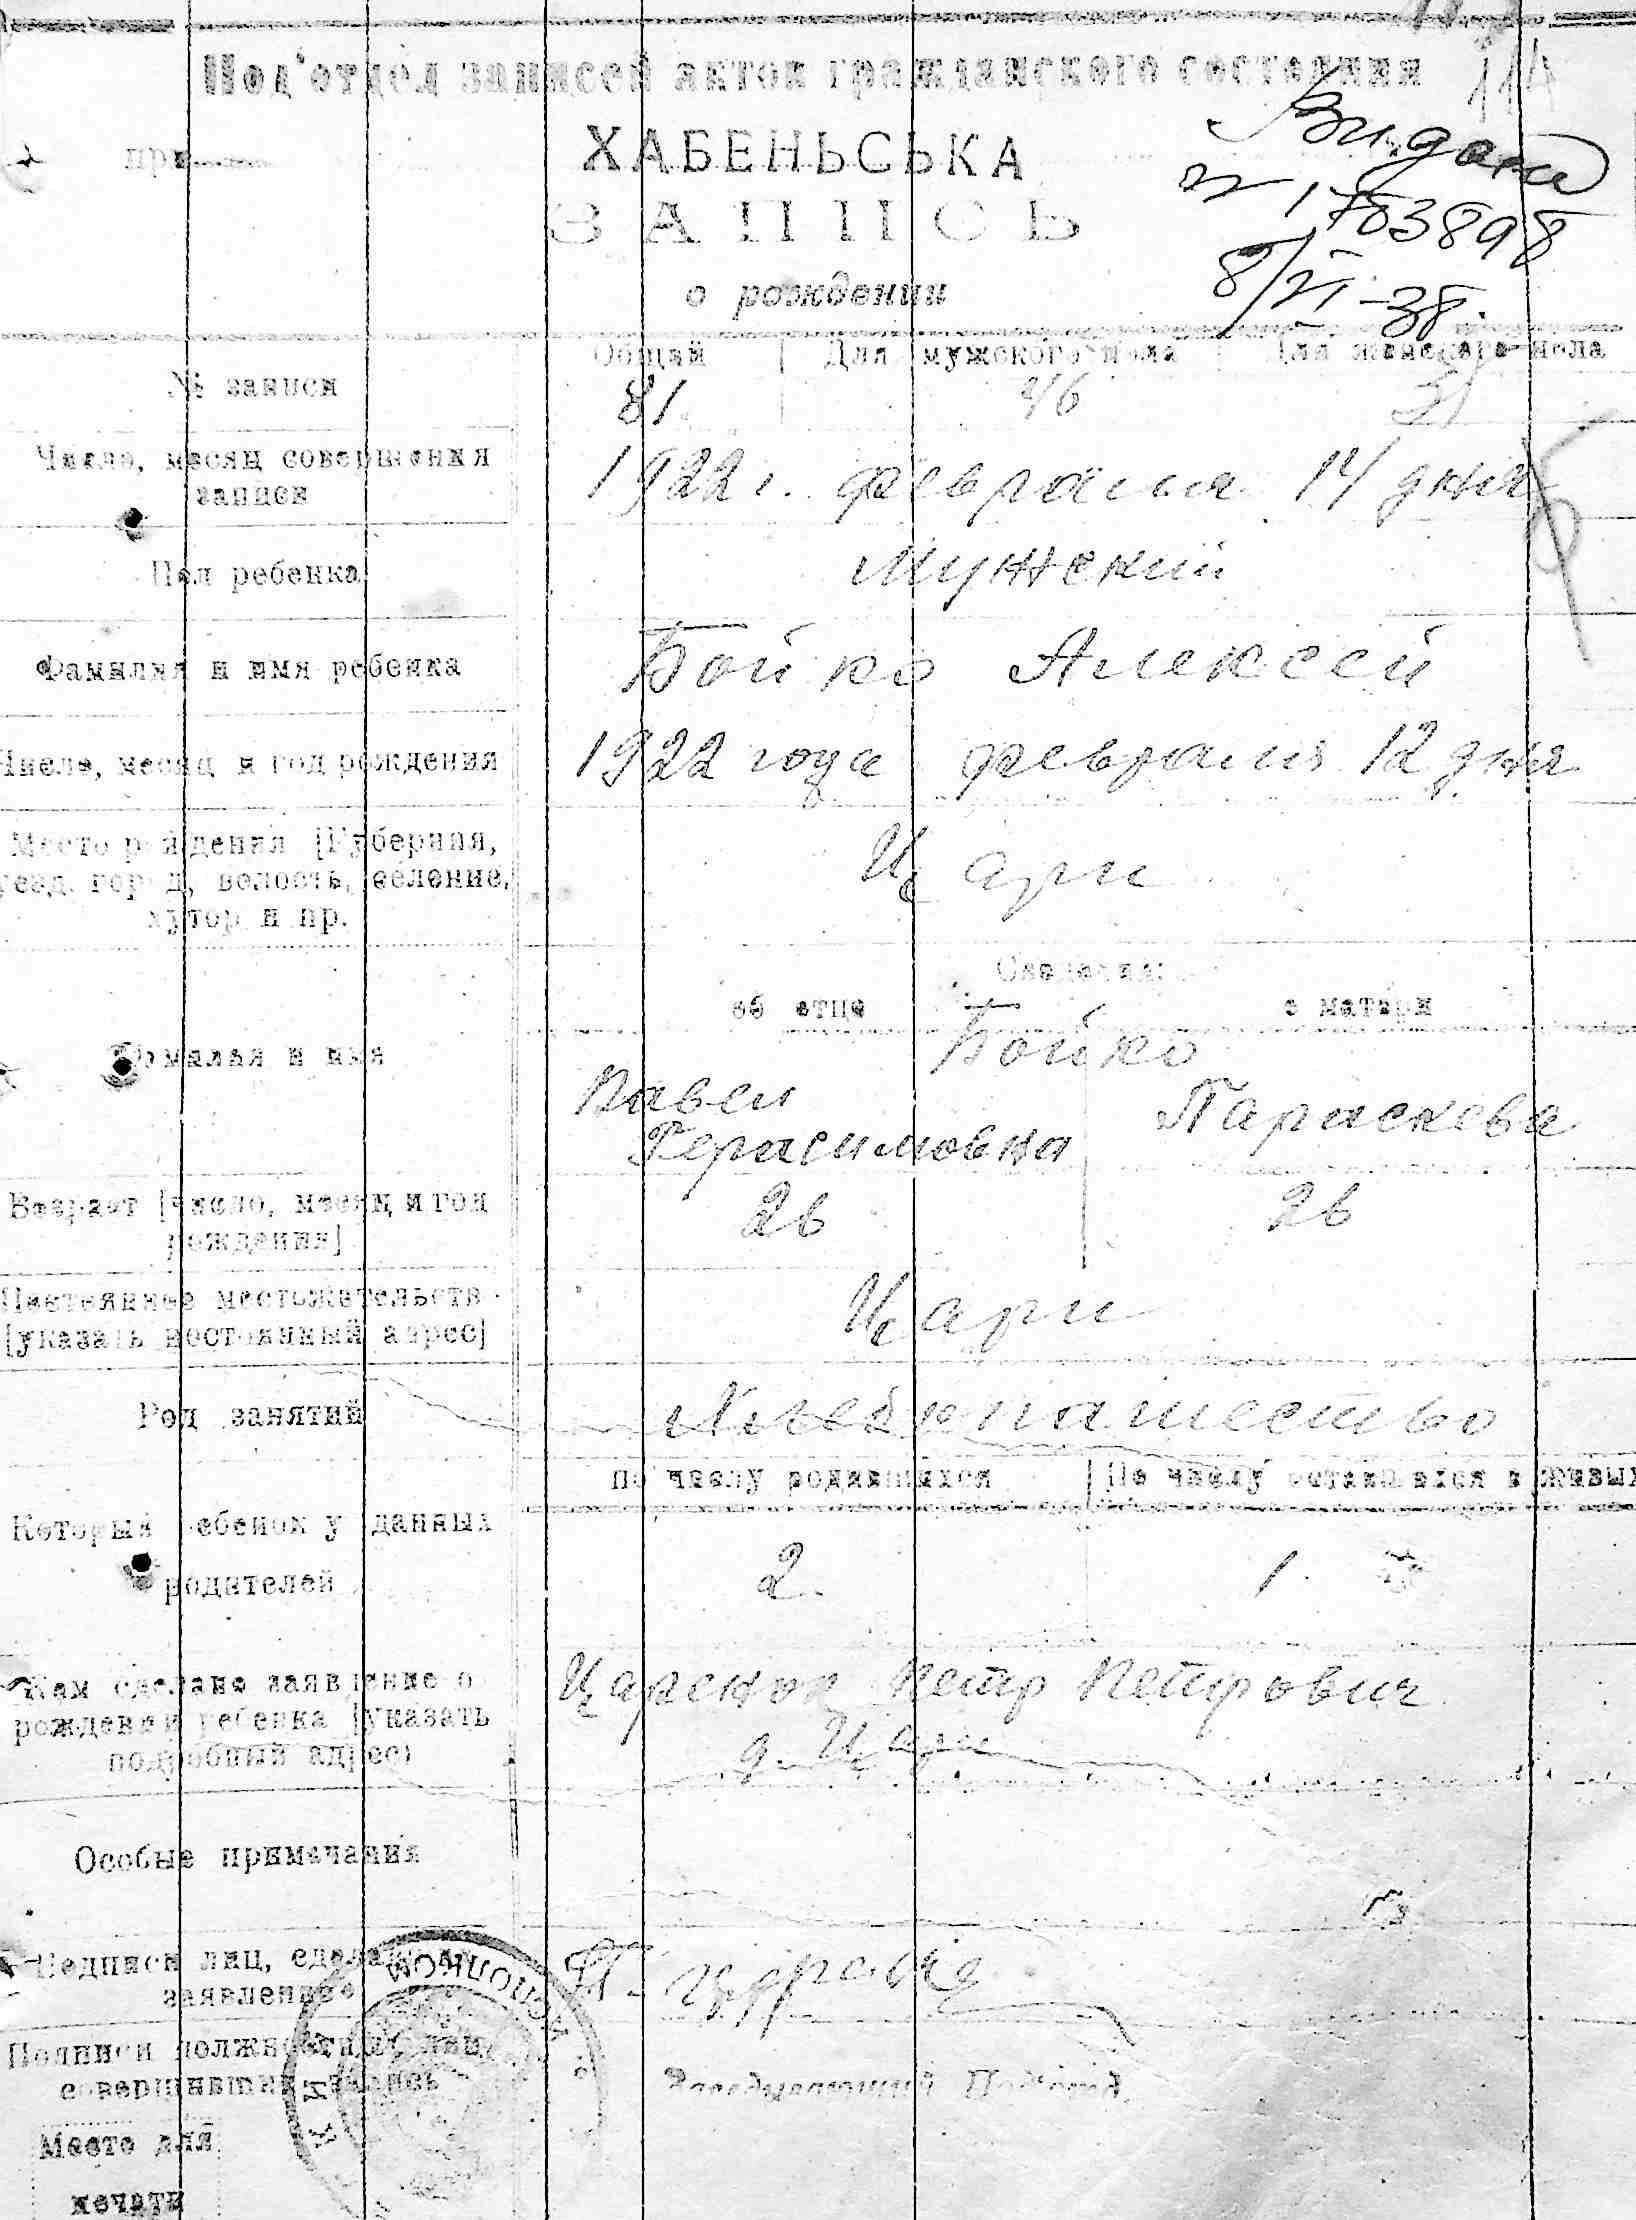 114
Под'отдел записей актов гражданского состояния
при
ХАБЕНЬСЬКА
ЗАПИСЬ
о рождении
Видано
8/VI-38.
Общий Для мужского пола Для женского пола
№ записи 81. 46
Число, месяц совершения
записи
1922 г. февраля 14 дня
Пол ребенка Мужский
Фамилия и имя ребенка Бойко Алексей
Число, месяц и год рождения 1922 года февраля 12 дня
Место рождения [Губерния,
уезд, город, волость, селение,
хутор и пр.
Цари
Сведения:
об отце о матери
Фамилия и имя Бойко
Павел Параскева
Герасимовна
Возраст [число, месяц и год
рождения]
26 26
Постоянное местожительств
[указать постоянный адрес]
Цари
Род занятий Хлебопашество
по числу родившихся По числу оставшихся в живых
Который ребенок у данных
родителей
2. 1.
Кем сделано заявление о
рождении ребенка [указать
подробный адрес]
Царенок Петр Петрович
д. Цари
Особые примечания
Подписи лиц, сделавших
заявление
Подписи должностных лиц,
совершивших запись
Заведывающий Под'отд.
Место для
печати